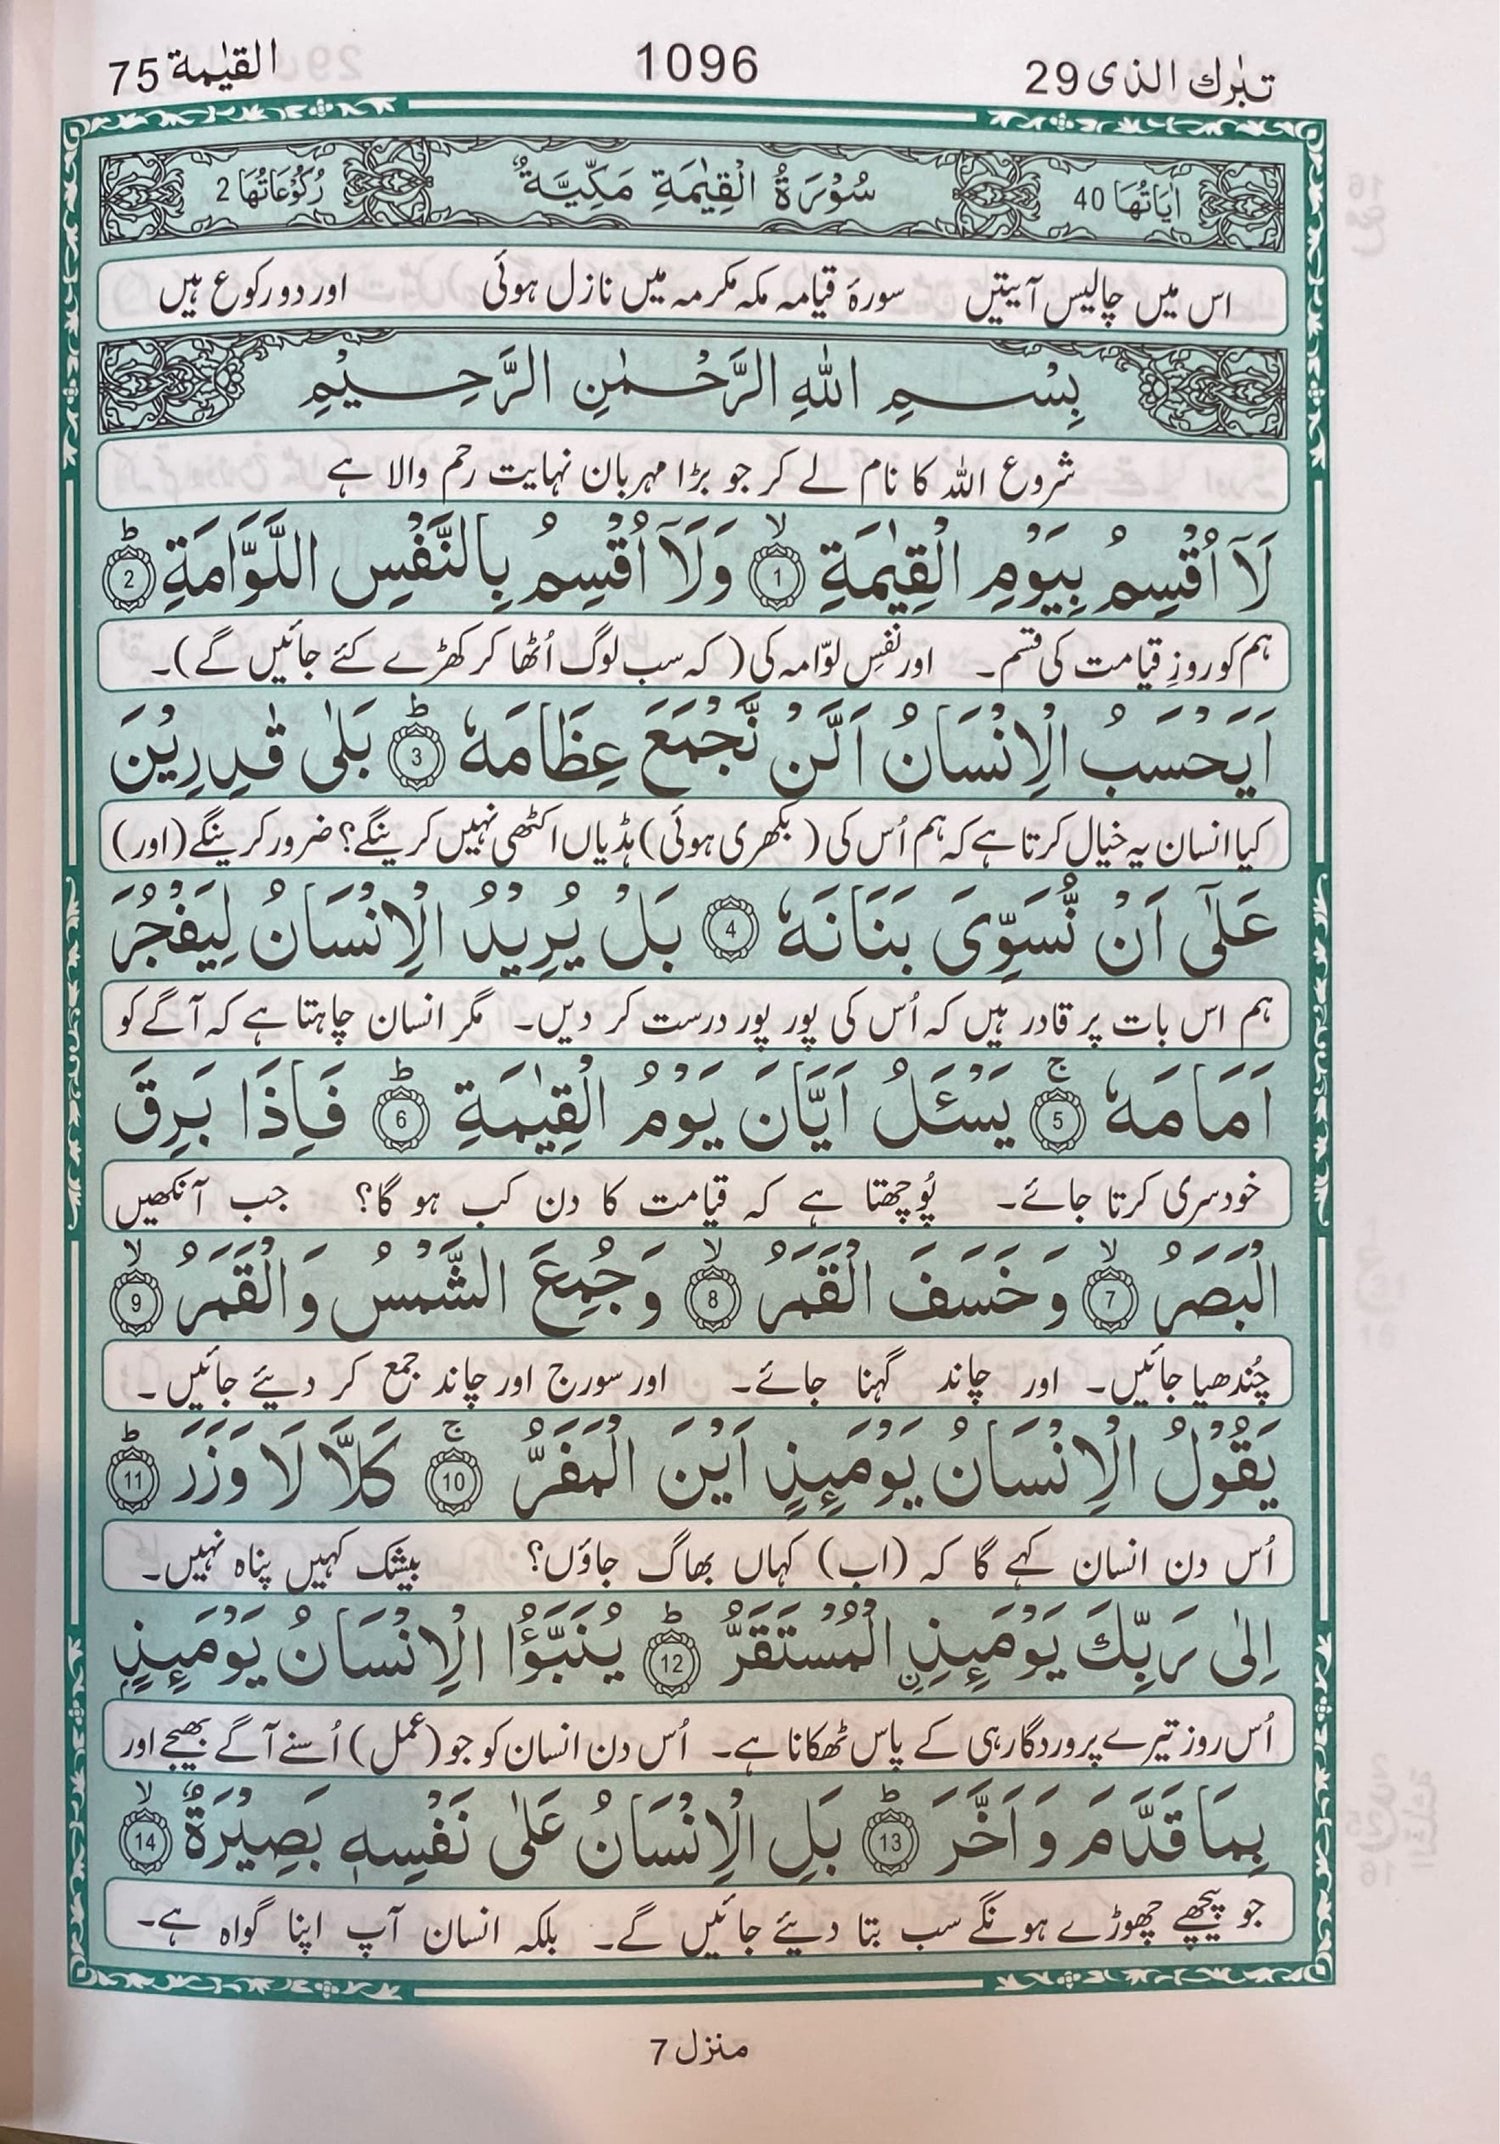 تبٰرك الذى 29 1096 القيٰمة 75
اٰيَاتُهَا 40 سُوْرَةُ الْقِيٰمَةِ مَكِّيَّةٌ رُكُوْعَاتُهَا 2
اس میں چالیس آیتیں سورۂ قیامہ مکہ مکرمہ میں نازل ہوئی اور دو رکوع ہیں
بِسْمِ اللّٰهِ الرَّحْمٰنِ الرَّحِيْمِ
شروع اللہ کا نام لے کر جو بڑا مہربان نہایت رحم والا ہے
لَآ اُقْسِمُ بِيَوْمِ الْقِيٰمَةِ ۙ 1 وَلَآ اُقْسِمُ بِالنَّفْسِ اللَّوَّامَةِ ؕ 2
ہم کو روزِ قیامت کی قسم۔ اور نفسِ لوّامہ کی (کہ سب لوگ اُٹھا کر کھڑے کئے جائیں گے)۔
اَيَحْسَبُ الْاِنْسَانُ اَلَّنْ نَّجْمَعَ عِظَامَهٗ ؕ 3 بَلٰى قٰدِرِيْنَ
کیا انسان یہ خیال کرتا ہے کہ ہم اُس کی (بکھری ہوئی) ہڈیاں اکٹھی نہیں کرینگے؟ ضرور کرینگے (اور)
عَلٰٓى اَنْ نُّسَوِّىَ بَنَانَهٗ 4 بَلْ يُرِيْدُ الْاِنْسَانُ لِيَفْجُرَ
ہم اس بات پر قادر ہیں کہ اُس کی پور پور درست کر دیں۔ مگر انسان چاہتا ہے کہ آگے کو
اَمَامَهٗ ۚ 5 يَسْـَٔلُ اَيَّانَ يَوْمُ الْقِيٰمَةِ ؕ 6 فَاِذَا بَرِقَ
خودسری کرتا جائے۔ پُوچھتا ہے کہ قیامت کا دن کب ہو گا؟ جب آنکھیں
الْبَصَرُ ۙ 7 وَخَسَفَ الْقَمَرُ ۙ 8 وَجُمِعَ الشَّمْسُ وَالْقَمَرُ ۙ 9
چُندھیا جائیں۔ اور چاند گہنا جائے۔ اور سورج اور چاند جمع کر دیئے جائیں۔
يَقُوْلُ الْاِنْسَانُ يَوْمَئِذٍ اَيْنَ الْمَفَرُّ ۚ 10 كَلَّا لَا وَزَرَ ؕ 11
اُس دن انسان کہے گا کہ (اب) کہاں بھاگ جاؤں؟ بیشک کہیں پناہ نہیں۔
اِلٰى رَبِّكَ يَوْمَئِذِۨ الْمُسْتَقَرُّ ؕ 12 يُنَبَّؤُا الْاِنْسَانُ يَوْمَئِذٍۢ
اُس روز تیرے پروردگار ہی کے پاس ٹھکانا ہے۔ اُس دن انسان کو جو (عمل) اُسنے آگے بھیجے اور
بِمَا قَدَّمَ وَاَخَّرَ ؕ 13 بَلِ الْاِنْسَانُ عَلٰى نَفْسِهٖ بَصِيْرَةٌ ۙ 14
جو پیچھے چھوڑے ہونگے سب بتا دیئے جائیں گے۔ بلکہ انسان آپ اپنا گواہ ہے۔
منزل 7